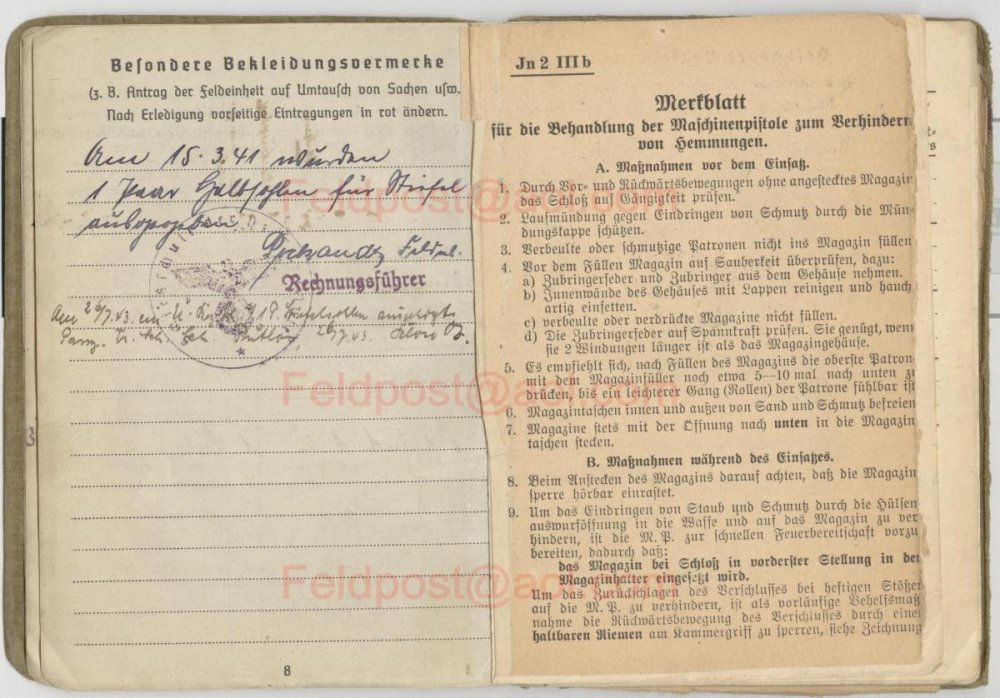 Besondere Bekleidungsvermerke
(z. B. Antrag der Feldeinheit auf Umtausch von Sachen usw.
Nach Erledigung vorseitige Eintragungen in rot ändern.
Am 15.3.41 wurden
1 Paar Halbsohlen für Stiefel
ausgegeben
Feldw.
Rechnungsführer
8
Jn 2 III b
Merkblatt
für die Behandlung der Maschinenpistole zum Verhindern
von Hemmungen.
A. Maßnahmen vor dem Einsatz.
1. Durch Vor- und Rückwärtsbewegungen ohne angestecktes Magazin
das Schloß auf Gängigkeit prüfen.
2. Laufmündung gegen Eindringen von Schmutz durch die Mün-
dungskappe schützen.
3. Verbeulte oder schmutzige Patronen nicht ins Magazin füllen
4. Vor dem Füllen Magazin auf Sauberkeit überprüfen, dazu:
a) Zubringerfeder und Zubringer aus dem Gehäuse nehmen.
b) Innenwände des Gehäuses mit Lappen reinigen und hauch
artig einfetten.
c) verbeulte oder verdrückte Magazine nicht füllen.
d) Die Zubringerfeder auf Spannkraft prüfen. Sie genügt, wenn
sie 2 Windungen länger ist als das Magazingehäuse.
5. Es empfiehlt sich, nach Füllen des Magazins die oberste Patron
mit dem Magazinfüller noch etwa 5—10 mal nach unten zu
drücken, bis ein leichterer Gang (Rollen) der Patrone fühlbar ist
6. Magazintaschen innen und außen von Sand und Schmutz befreien
7. Magazine stets mit der Öffnung nach unten in die Magazin
taschen stecken.
B. Maßnahmen während des Einsatzes.
8. Beim Anstecken des Magazins darauf achten, daß die Magazin
sperre hörbar einrastet.
9. Um das Eindringen von Staub und Schmutz durch die Hülsen
auswurföffnung in die Waffe und auf das Magazin zu ver
hindern, ist die M. P. zur schnellen Feuerbereitschaft vorzu
bereiten, dadurch daß:
das Magazin bei Schloß in vorderster Stellung in den
Magazinhalter eingesetzt wird.
Um das Zurückschlagen des Verschlusses bei heftigen Stößen
auf die M. P. zu verhindern, ist als vorläufige Behelfsmaß
nahme die Rückwärtsbewegung des Verschlusses durch einen
haltbaren Riemen am Kammergriff zu sperren, siehe Zeichnung
Feldpost@aol.com
Feldpost@aol.com
Feldpost@aol.com